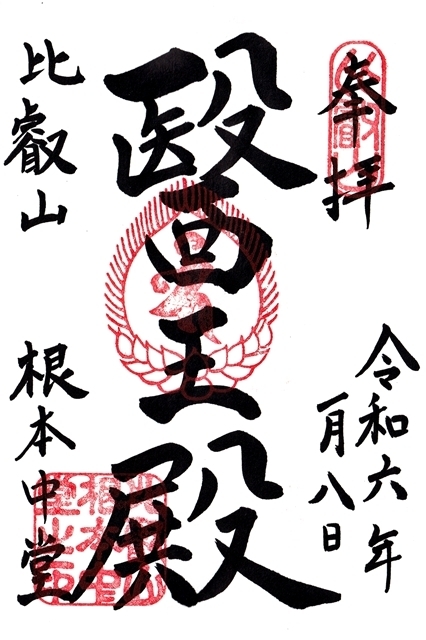 奉拝
令和六年
一月八日
醫王殿
比叡山
根本中堂